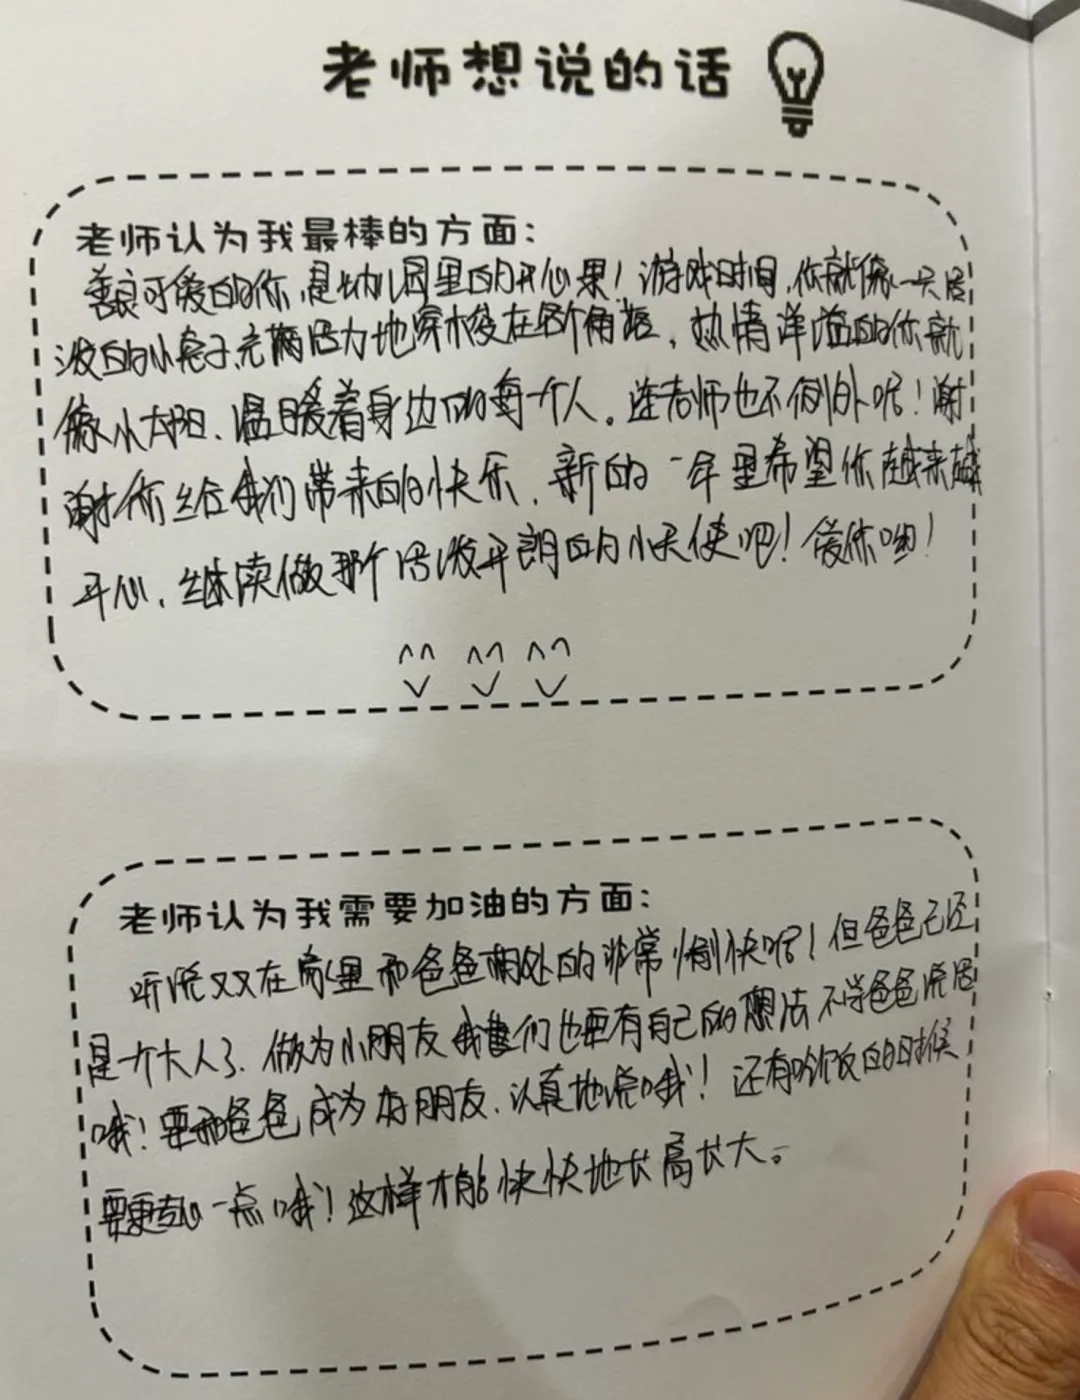 老师想说的话
老师认为我最棒的方面：
善良可爱的你,是幼儿园里的开心果！游戏时间,你就像一只活
泼的小兔子,充满活力地穿梭在各个角落，热情洋溢的你就
像小太阳、温暖着身边的每一个人。连老师也不例外呢！谢
谢你给我们带来的快乐，新的一年里希望你越来越
开心、继续做那个活泼开朗的小天使吧！爱你哟！
老师认为我需要加油的方面：
听说双双在家里和爸爸相处的非常愉快呢！但爸爸已经
是一个大人了、做为小朋友我们也要有自己的想法不学爸爸说话
哦！要和爸爸成为好朋友、认真地说哦！还有吃饭的时候
要更专心一点哦！这样才能快快地长高长大。